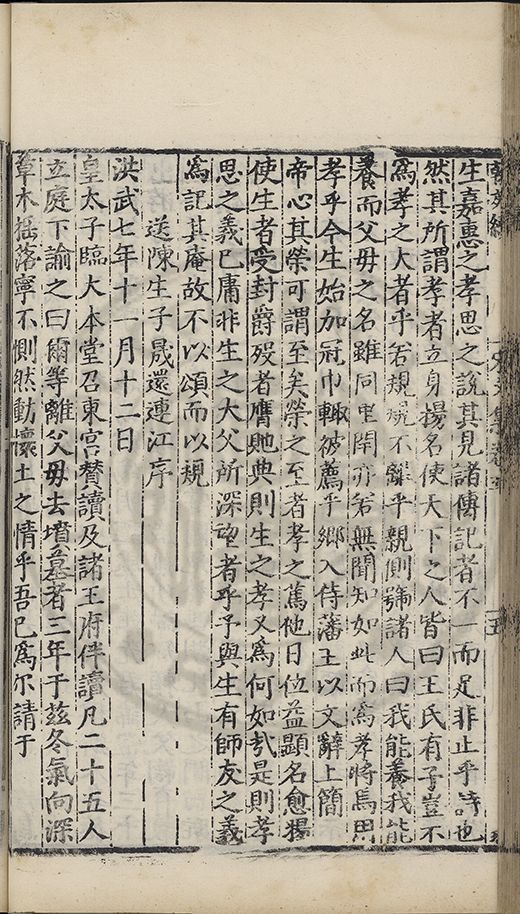 生嘉惠之孝思之說其見諸傳記者不一而足非止乎詩也
然其所謂孝者立身揚名使天下之人皆曰王氏有子豈不
爲孝之大者乎若規規不離乎親則號諸人曰我能養我能
養而父母之名雖同里閈亦若無聞知如此而爲孝將焉用
孝乎今生始加冠巾輙被薦乎鄉入侍藩王以文辭上簡
帝心其榮可謂至矣榮之至者孝之篤他日位益顯名愈揚
使生者受封爵殁者膺貤典則生之孝又爲何如㢤是則孝
思之義已庸非生之大父所深望者乎予與生有師友之義
爲記其庵故不以頌而以規
送陳生子晟還連江序
洪武七年十一月十二日
皇太子臨大本堂召東宮賛讀及諸王府伴讀凡二十五人
立庭下諭之曰爾等離父母去墳墓者三年于茲冬氣向深
草木揺落寧不惻然動懷土之情乎吾已爲尔請于